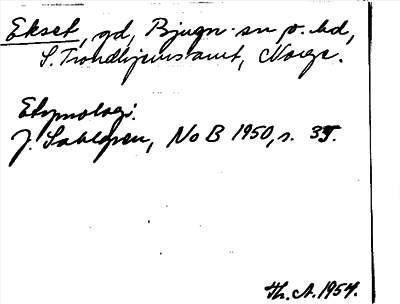 Ekset, gd, Bjugn sn o. hd,
S. Trondhjems amt, Norge.
Etymologi.
J. Sahlgren, NoB 1950, s. 35.
Th. A. 1954.